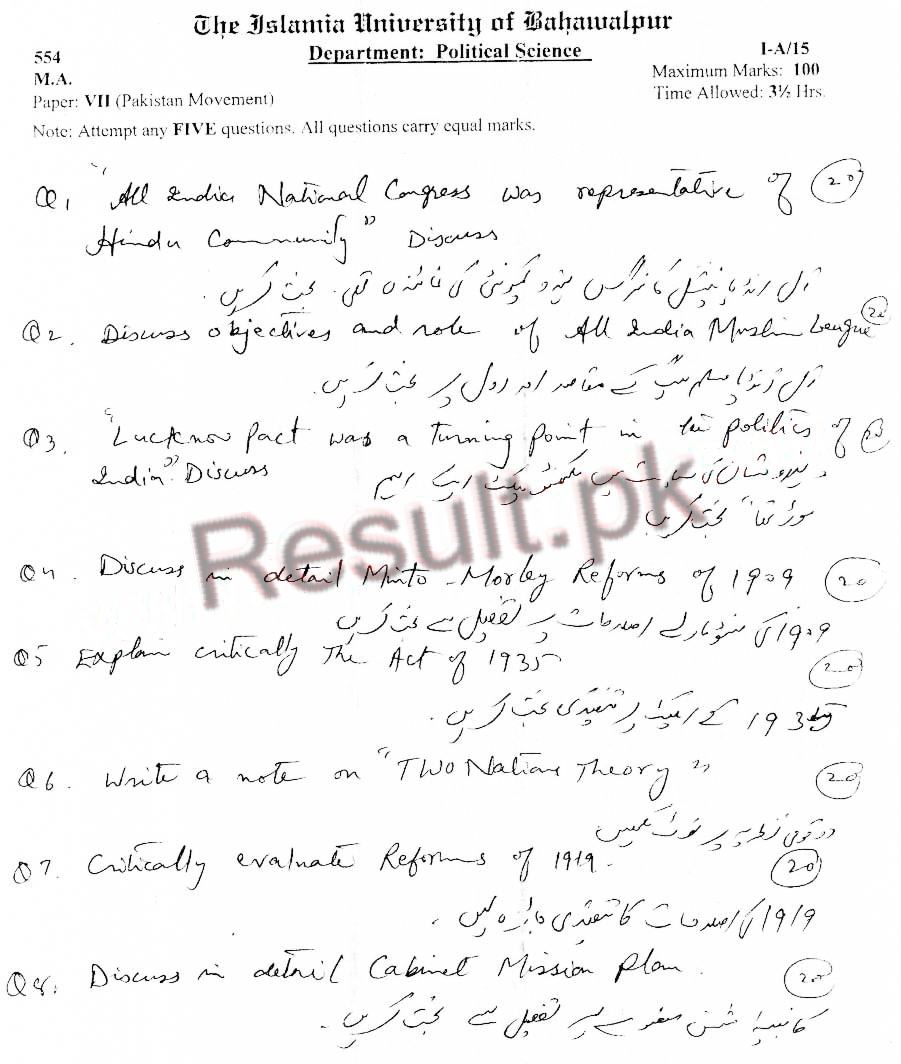 The Islamia University of Bahawalpur
Department: Political Science
554
I-A/15
M.A.
Maximum Marks: 100
Paper: VII (Pakistan Movement)
Time Allowed: 3½ Hrs.
Note: Attempt any FIVE questions. All questions carry equal marks.
Q1 "All India National Congress was representative of (20)
Hindu Community" Discuss
آل انڈیا نیشنل کانگرس ہندو کمیونٹی کی نمائندہ تھی۔ بحث کریں۔
Q2. Discuss objectives and role of All India Muslim League (20)
آل انڈیا مسلم لیگ کے مقاصد اور رول پر بحث کریں۔
Q3. "Lucknow Pact was a Turning Point in the politics of (20)
India" Discuss
ہندوستان کی سیاست میں لکھنؤ پیکٹ ایک اہم
موڑ تھا" بحث کریں
Result.pk
Q4. Discuss in detail Minto-Morley Reforms of 1909 (20)
1909 کی منٹو مارلے اصلاحات پر تفصیل سے بحث کریں
Q5 Explain critically The Act of 1935 (20)
1935 کے ایکٹ پر تنقیدی بحث کریں۔
Q6. Write a note on "Two Nations Theory" (20)
دو قومی نظریہ پر نوٹ لکھیں
Q7. Critically evaluate Reforms of 1919. (20)
1919 کی اصلاحات کا تنقیدی جائزہ لیں۔
Q8. Discuss in detail Cabinet Mission Plan. (20)
کابینہ مشن منصوبے پر تفصیل سے بحث کریں۔